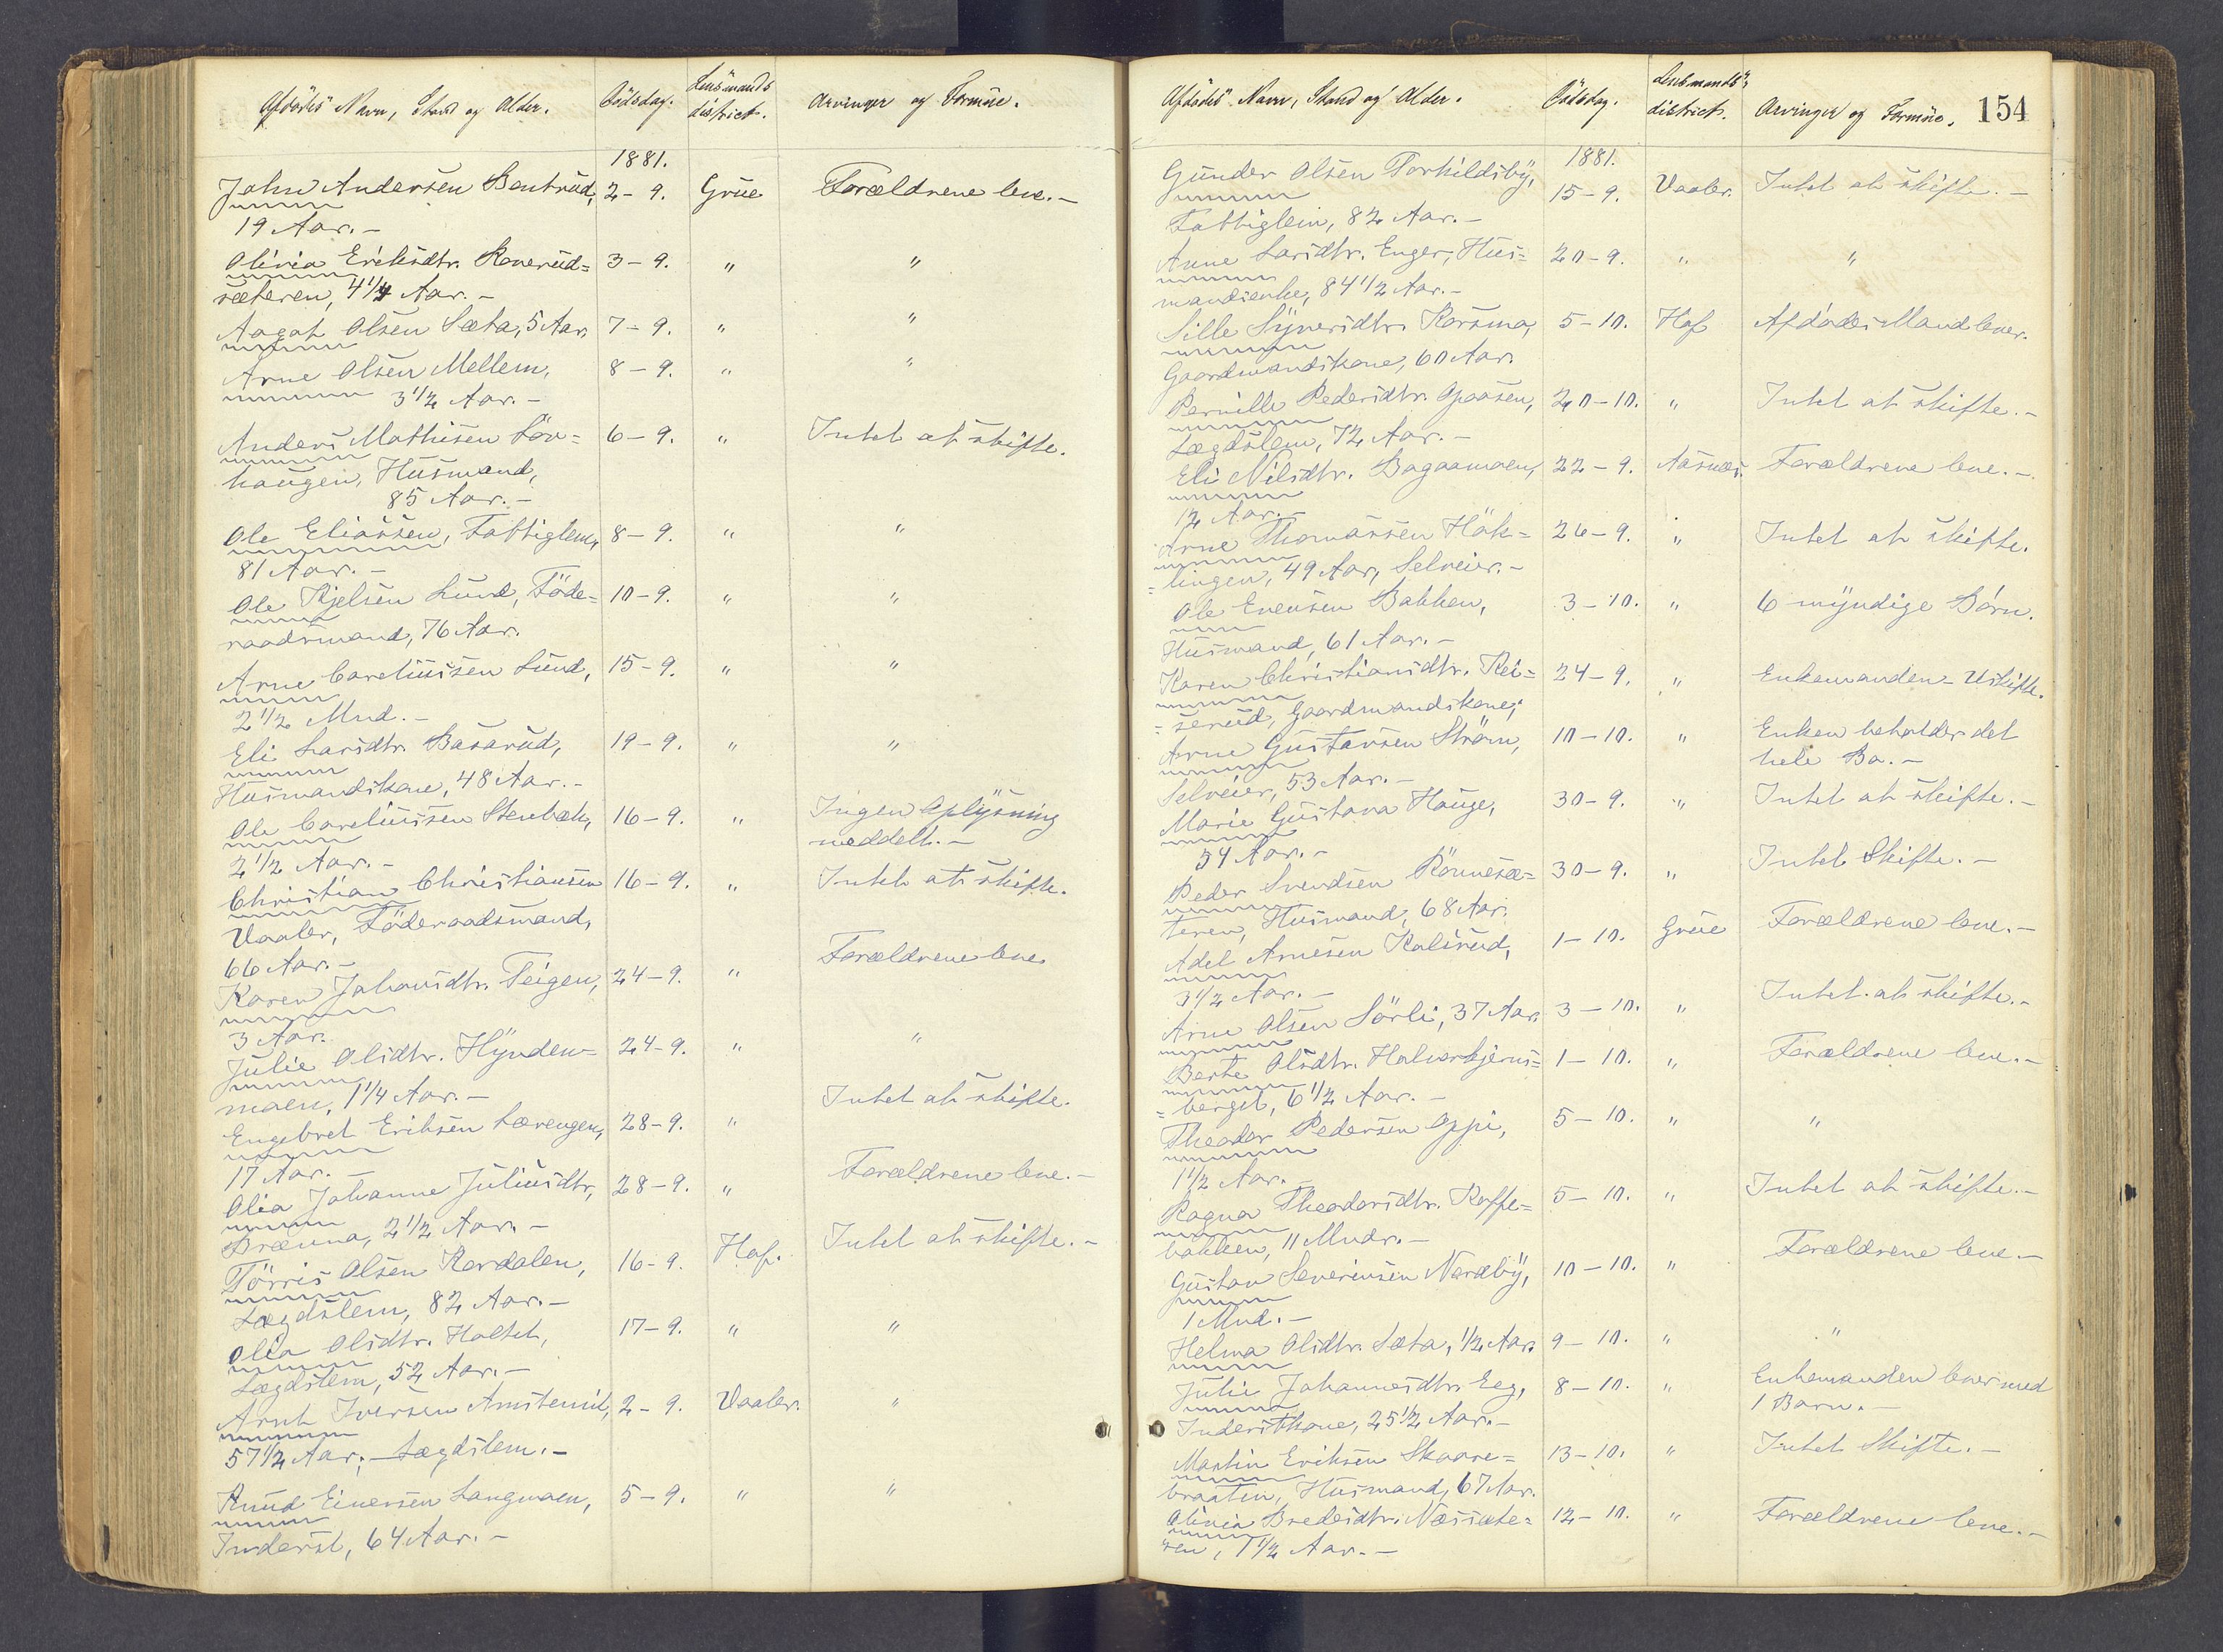 Afdødes Navn, Stand og Alder. Dødsdag. Lensmands district. Arvinger og Formue.
1881.
John Andersen Bentrud, 2-9. Grue Forældrene leve.-
19 Aar.-
Olivia Eriksdtr. Roverud= 3-9. " "
sæteren, 4 1/4 Aar.-
Aagot Olsen Sæta, 5 Aar, 7-9. " "
Arne Olsen Mellem, 8-9. " "
3 1/2 Aar.-
Anders Mathisen Löv= 6-9. " Intet at skifte.
haugen, Husmand,
85 Aar.-
Ole Eliassen, Fattiglem, 8-9. " "
81 Aar.-
Ole Kjelsen Lund, Föde= 10-9. " "
raadsmand, 76 Aar.
Arne Careliussen Lund, 15-9. " "
2 1/2 Mnd.-
Eli Larsdtr. Basarud, 19-9. " "
Husmandskone, 48 Aar.-
Ole Careliussen Stenbæk, 16-9. " Ingen Oplysning
2 1/2 Aar.- meddelt.-
Christian Christiansen 16-9. " Intet at skifte.
Vaaler, Föderaadsmand,
66 Aar.-
Karen Johansdtr. Teigen, 24-9. " Forældrene leve
3 Aar.
Julie Olsdtr. Hynden= 24-9. " "
moen, 1 1/4 Aar.-
Engebret Eriksen Lærengen, 28-9. " Intet at skifte.
17 Aar.-
Olia Johanne Juliusdtr, 28-9. " Forældrene leve.-
Brænna, 2 1/2 Aar.-
Törris Olsen Rordalen, 16-9. Hof. Intet at skifte.-
Lægdslem, 82 Aar.-
Olia Olsdtr. Holtet, 17-9. " "
Lægdslem, 52 Aar.-
Arnt Iversen 2-9. Vaaler. "
57 1/2 Aar,- Lægdslem.-
Knud Einersen Langmoen, 5-9. " "
Inderst, 64 Aar.-
Afdødes Navn, Stand og Alder. Dødsdag. Lensmands district. Arvinger og Formue. 154
1881.
Gunder Olsen Torkildsby, 15-9. Vaaler. Intet at skifte.-
Fattiglem, 82 Aar.-
Anne Larsdtr. Enger, Hus= 20-9. " "
mandsenke, 84 1/2 Aar.-
Sille Syversdtr. Korsmo, 5-10. Hof Afdødes Mand lever.
Gaardmandskone, 60 Aar.
Pernille Pedersdtr. Opaasen, 20-10. " Intet at skifte.-
Lægdslem, 72 Aar.-
Eli Nilsdtr. Bagaamoen, 22-9. Aasnæs. Forældrene leve.-
12 Aar.-
Arne Thomassen Hök= 26-9. " Intet at skifte.
=lingen, 49 Aar, Selveier.-
Ole Evensen Bakken, 3-10. " 6 myndige Børn.
Husmand, 61 Aar.-
Karen Christiansdtr. Rei= 24-9. " Enkemanden - Uskifte.
=serud, Gaardmandskone,
Arne Gustavsen Ström, 10-10. " Enken beholder det
Selveier, 53 Aar.- hele Bo.-
Marie Gustava Hauge, 30-9. " Intet at skifte.-
54 Aar.-
Peder Svendsen Rönnesæ= 30-9. " Intet Skifte.-
teren, Husmand, 68 Aar.
Adel Arnesen Kalsrud, 1-10. Grue Forældrene leve.-
3 1/2 Aar.-
Arne Olsen Sörli, 37 Aar. 3-10. " Intet at skifte.-
Berte Olsdtr. Halvorkjerns= 1-10. " Forældrene leve.-
=berget, 6 1/2 Aar.-
Theodor Pedersen Oppi, 5-10. " "
1 1/2 Aar.-
Ragna Theodorsdtr. Koffe= 5-10. " Intet at skifte.-
bakken, 11 Mndr.-
Gustav Severinsen Nordby, 10-10. " Forældrene leve.-
1 Mnd.-
Helma Olsdtr. Sæta, 1/2 Aar. 9-10. " "
Julie Johannesdtr. Eeg, 8-10. " Enkemanden lever med
Inderstkone, 25 1/2 Aar.- 1 Barn.-
Martin Eriksen Skaare= 13-10. " Intet Skifte.-
braaten, Husmand, 67 Aar.
Olivia Bredesdtr. Næssæte= 12-10. " Forældrene leve.-
ren, 1 1/2 Aar.-